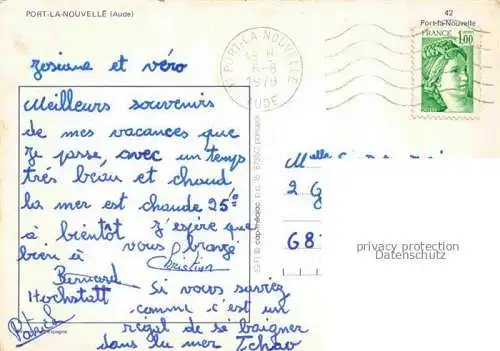 PORT-LA-NOUVELLE (Aude)
42
Port-la-Nouvelle
FRANCE 1,00
PORT-LA-NOUVELLE
1979
AUDE
Josiane et véro
Meilleurs souvenirs
de mes vacances que
Je passe, avec un temps
très beau et chaud
la mer est chaude 25°
à bientôt J'espère que
vous bronzé
bien à
Christian
Bernard
Hochstatt
Si vous saviez
comme c'est un
régal de se baigner
dans la mer Tchao
Patrick
Mlle
2 G
68
privacy protection
Datenschutz